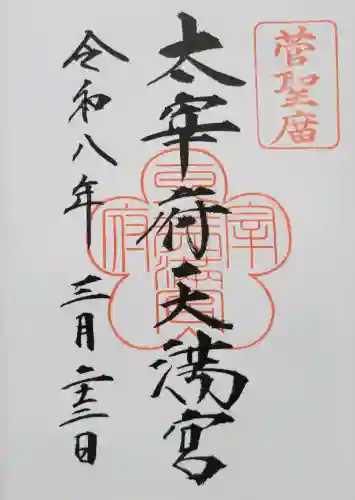 菅聖庿
太宰府天満宮
令和八年 三月二十三日